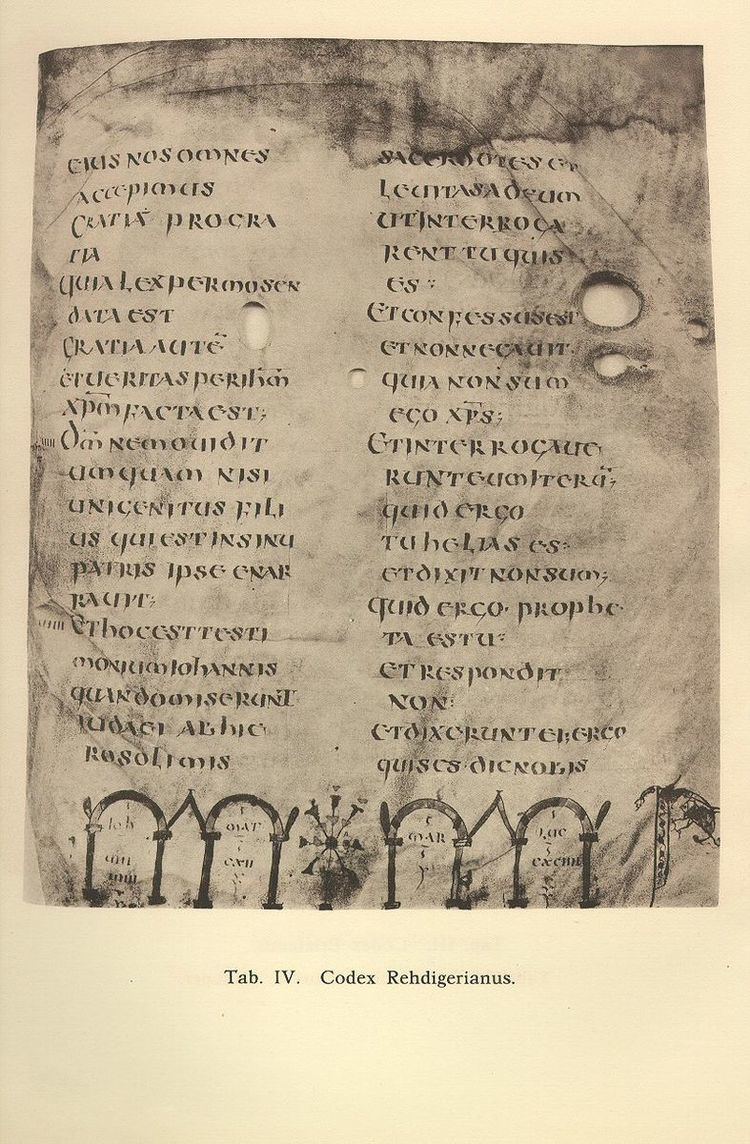 EIUS NOS OMNES
ACCEPIMUS
GRATIĀ PRO GRA
TIA
QUIA LEX PER MOSEN
DATA EST
GRATIA AUTĒ
ET UERITAS PER IHM̄
XPM̄ FACTA EST;
DM̄ NEMO UIDIT
UMQUAM NISI
UNIGENITUS FILI
US QUI EST IN SINU
PATRIS IPSE ENAR
RAUIT;
ET HOC EST TESTI
MONIUM IOHANNIS
QUANDO MISERUNT
IUDAEI AB HIE
ROSOLIMIS
SACERDOTES ET
LEUITAS AD EUM
UT INTERROGA
RENT TU QUIS
ES:
ET CONFESSUS EST
ET NON NEGAUIT.
QUIA NON SUM
EGO XPS̄;
ET INTERROGAUE
RUNT EUM ITERŪ;
QUID ERGO
TU HELIAS ES:
ET DIXIT NON SUM;
QUID ERGO· PROPHE
TA ES TU:
ET RESPONDIT
NON:
ET DIXERUNT EI; ERGO
QUIS ES· DIC NOBIS
IOH
MAT
CXII
MAR
LUC
Tab. IV. Codex Rehdigerianus.